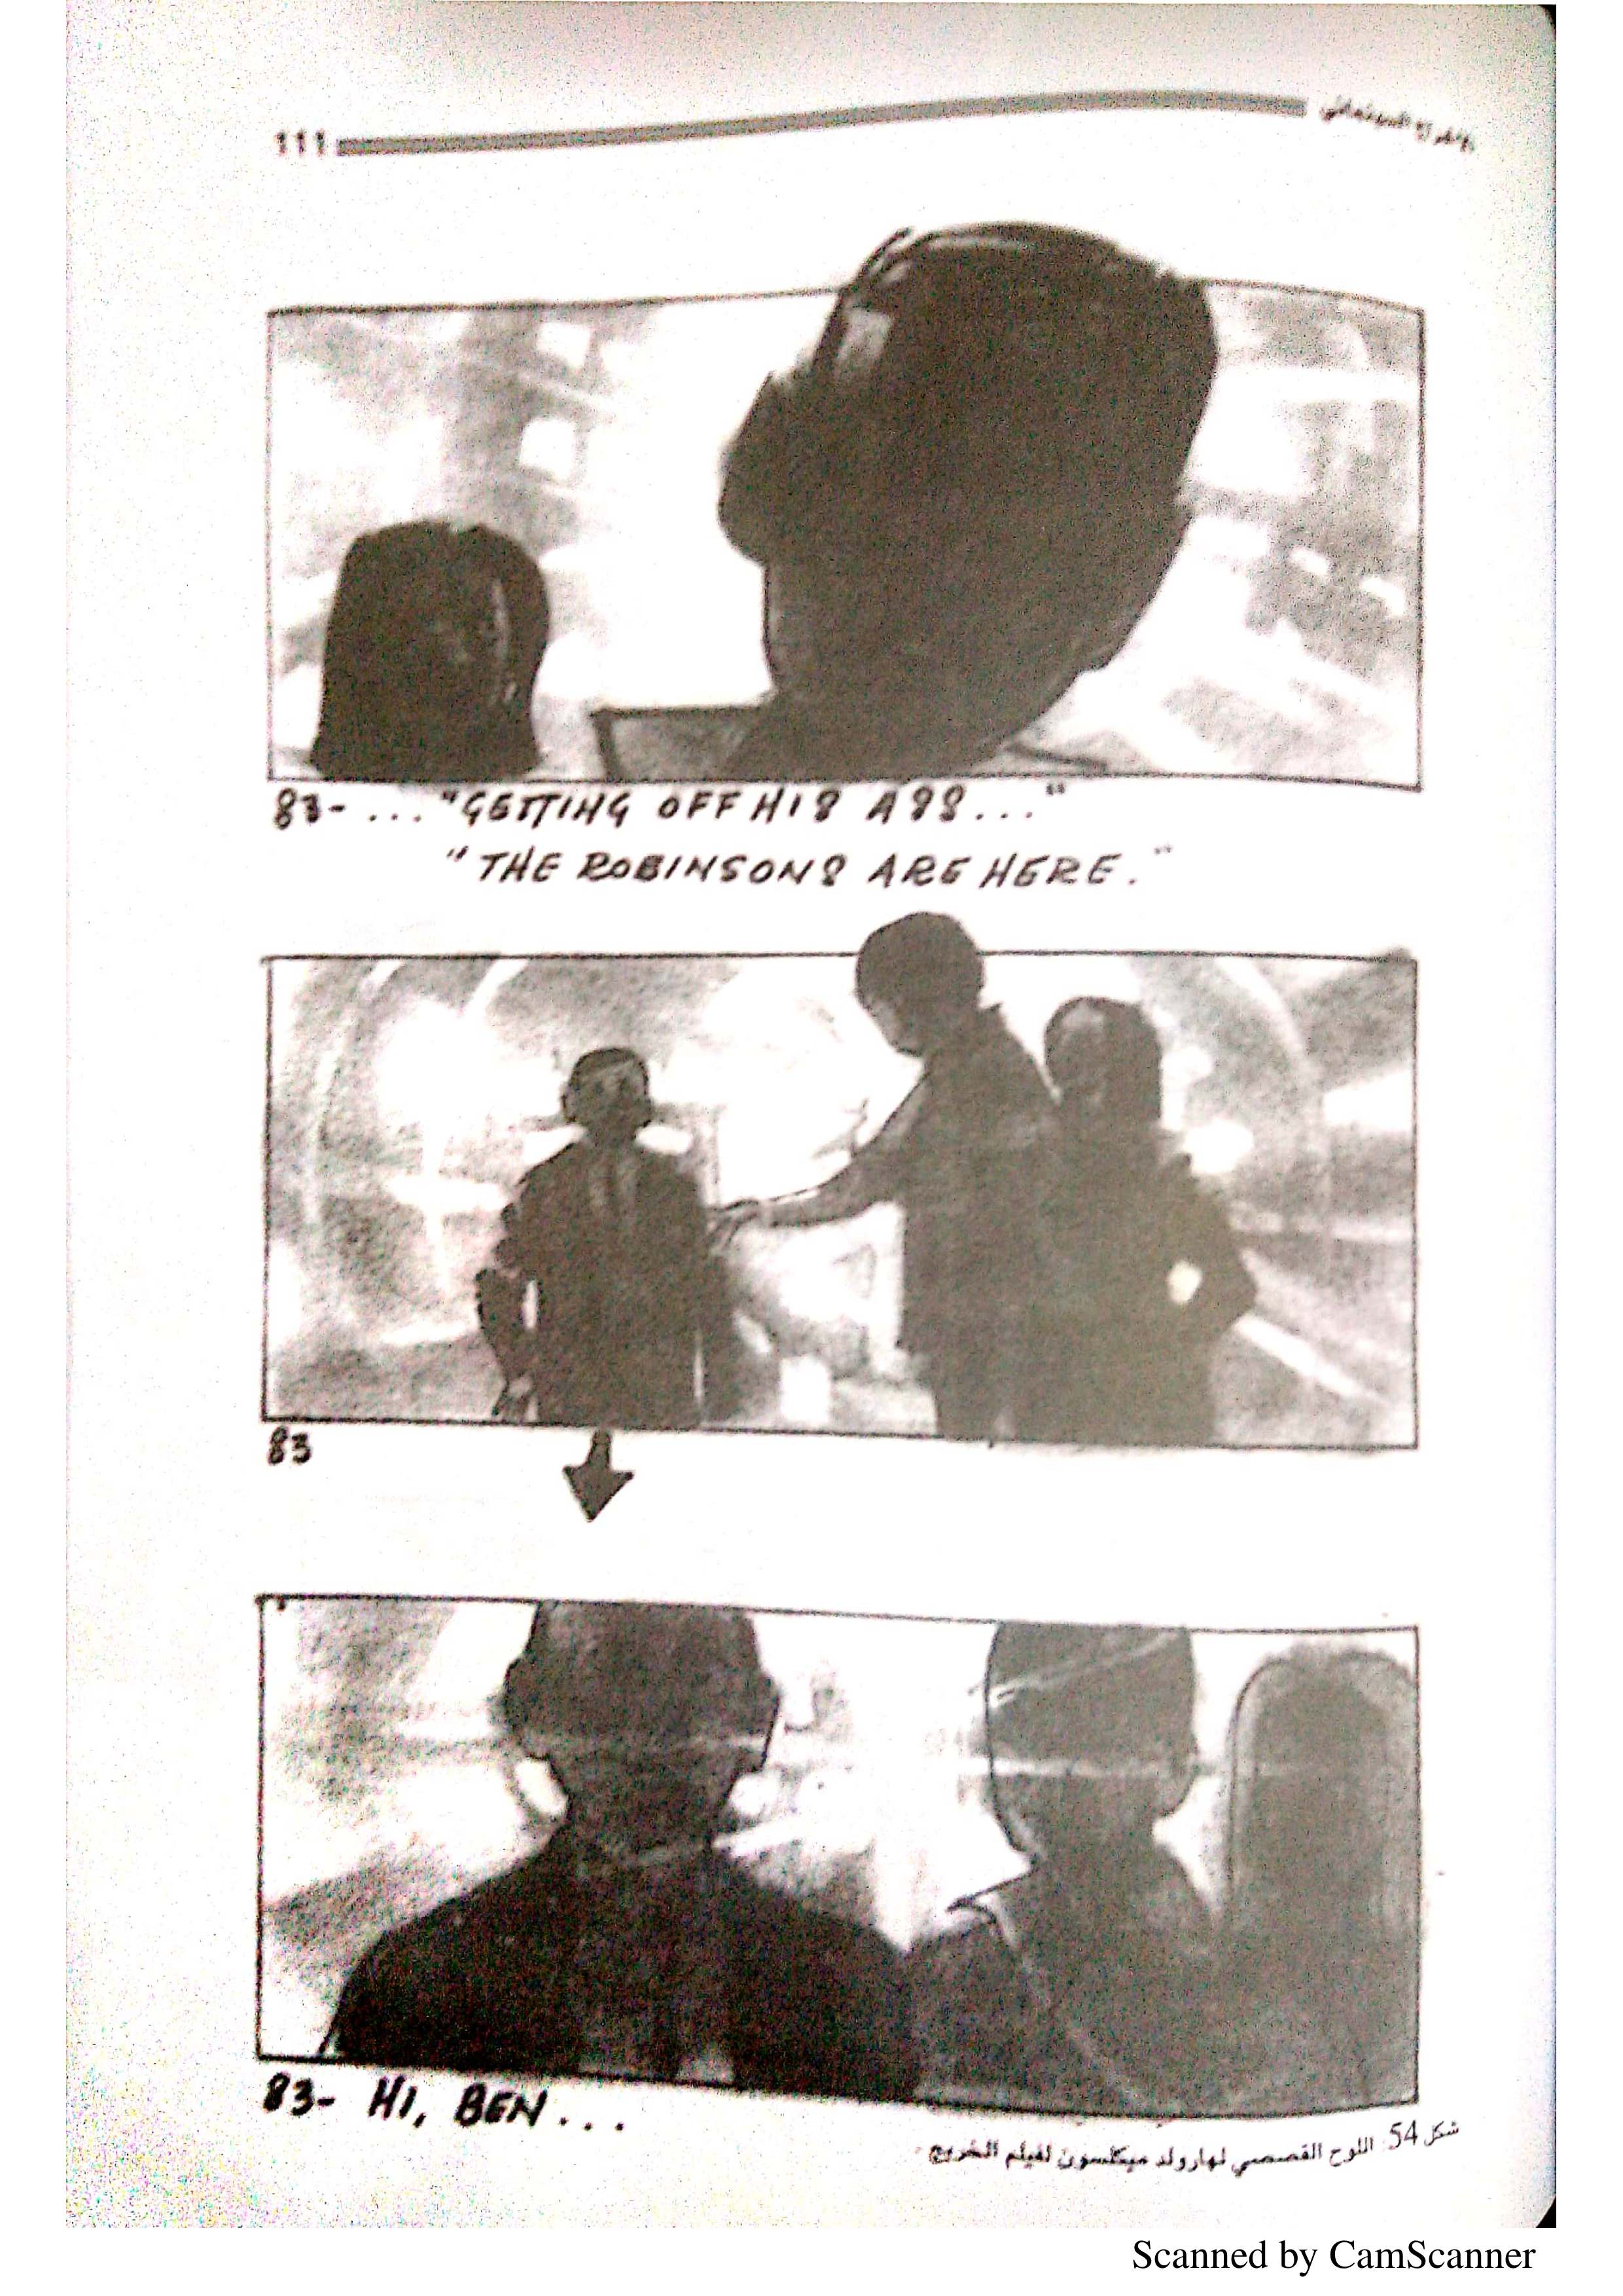 الاخراج السينمائي 111
83- ... "GETTING OFF HIS ASS..."
"THE ROBINSONS ARE HERE."
83
83- HI, BEN...
شكل 54: اللوح القصصي لهارولد ميكلسون لفيلم الخريج
Scanned by CamScanner